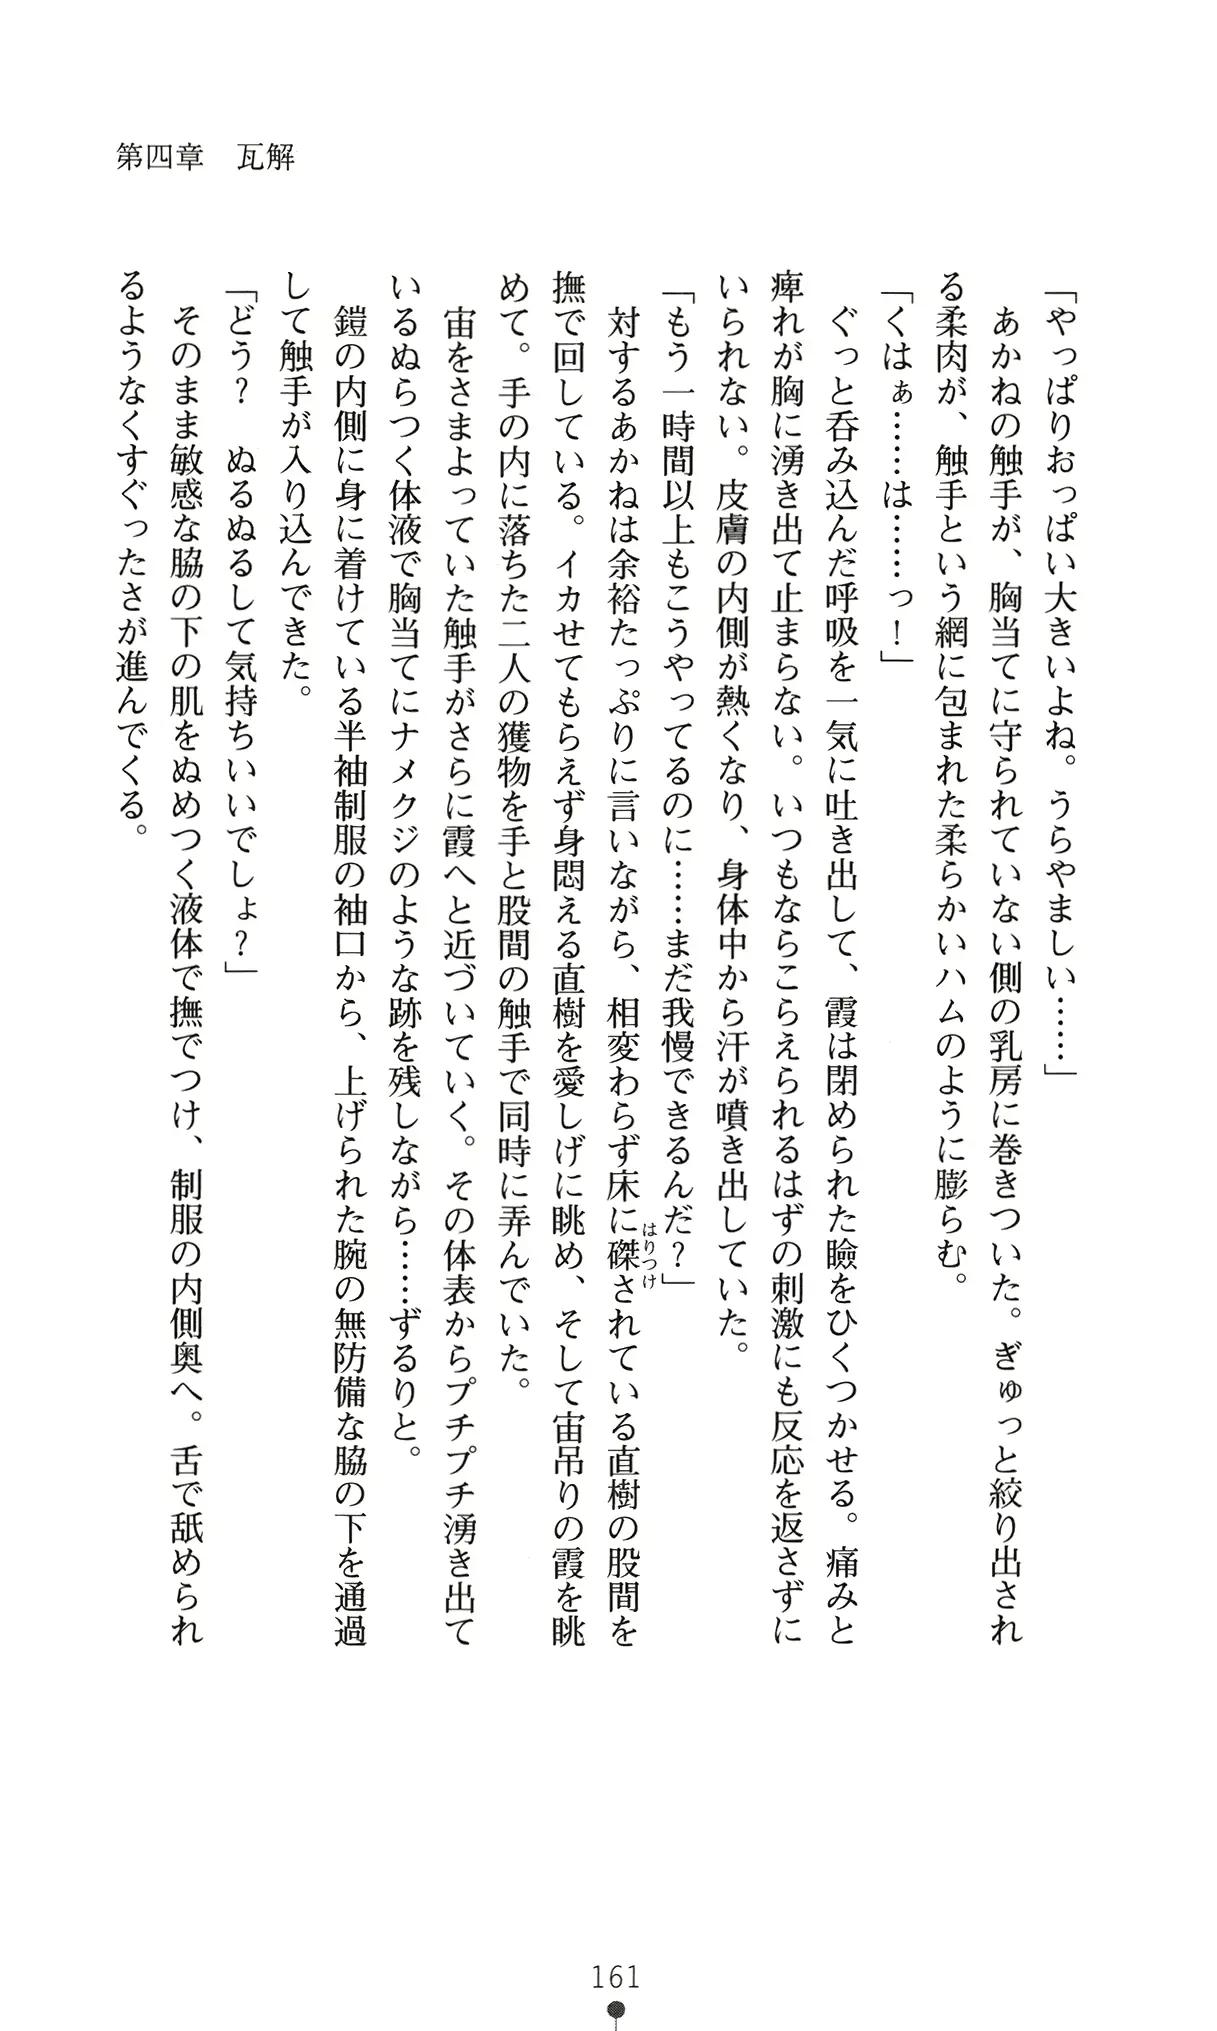 第四章　瓦解
「やっぱりおっぱい大きいよね。うらやましい……」
　あかねの触手が、胸当てに守られていない側の乳房に巻きついた。ぎゅっと絞り出され
る柔肉が、触手という網に包まれた柔らかいハムのように膨らむ。
「くはぁ……は……っ！」
　ぐっと呑み込んだ呼吸を一気に吐き出して、霞は閉められた瞼をひくつかせる。痛みと
痺れが胸に湧き出て止まらない。いつもならこらえられるはずの刺激にも反応を返さずに
いられない。皮膚の内側が熱くなり、身体中から汗が噴き出していた。
「もう一時間以上もこうやってるのに……まだ我慢できるんだ？」
　対するあかねは余裕たっぷりに言いながら、相変わらず床に磔はりつけされている直樹の股間を
撫で回している。イカせてもらえず身悶える直樹を愛しげに眺め、そして宙吊りの霞を眺
めて。手の内に落ちた二人の獲物を手と股間の触手で同時に弄んでいた。
　宙をさまよっていた触手がさらに霞へと近づいていく。その体表からプチプチ湧き出て
いるぬらつく体液で胸当てにナメクジのような跡を残しながら……ずるりと。
　鎧の内側に身に着けている半袖制服の袖口から、上げられた腕の無防備な脇の下を通過
して触手が入り込んできた。
「どう？　ぬるぬるして気持ちいいでしょ？」
　そのまま敏感な脇の下の肌をぬめつく液体で撫でつけ、制服の内側奥へ。舌で舐められ
るようなくすぐったさが進んでくる。
161